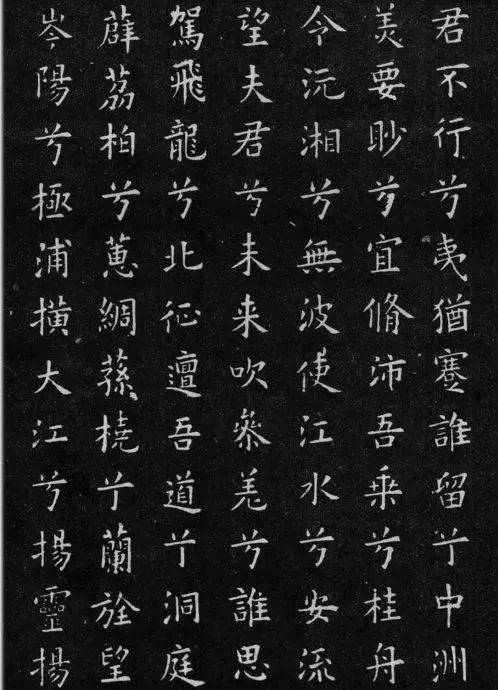 君不行兮夷猶蹇誰留兮中洲
美要眇兮宜脩沛吾乗兮桂舟
令沅湘兮無波使江水兮安流
望夫君兮未来吹参差兮誰思
駕飛龍兮北征邅吾道兮洞庭
薜荔柏兮蕙綢蓀橈兮蘭旌望
岑陽兮極浦橫大江兮揚靈揚